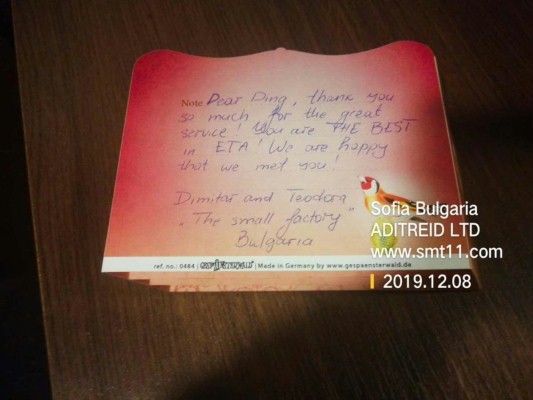 Note Dear Ping, thank you
so much for the great
service! You are THE BEST
in ETA! We are happy
that we met you!
Dimitar and Teodora
„The small factory"
Bulgaria
ref. no.: 0484 | Made in Germany by www.gespaensterwald.de
Sofia Bulgaria
ADITREID LTD
www.smt11.com
2019.12.08